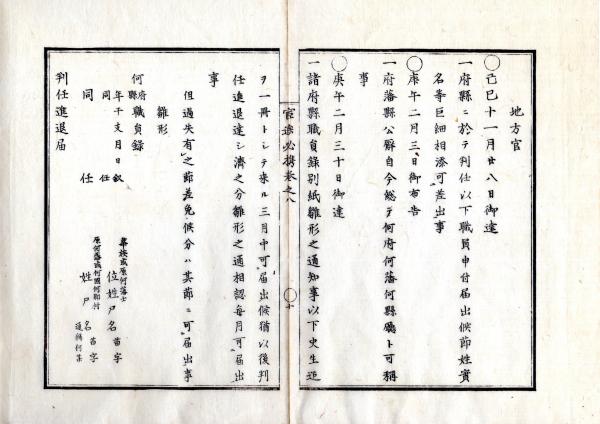 地方官
〇己巳十一月廿八日御達
一府縣ニ於テ判任以下職員申付届出候節姓實
名等巨細相添可差出事
〇庚午二月三日御布告
一府藩縣公廨自今総テ何府何藩何縣廳ト可稱
事
〇庚午二月三十日御達
一諸府縣職員録別紙雛形之通知事以下史生迄
官途必携巻之八
〇十
ヲ一冊トシテ来ル三月中可届出候猶以後判
任進退達シ濟之分雛形之通相認毎月可届出
事
但過失有之節差免候分ハ其節ニ可届出事
雛形
何府縣職員録
年干支月日叙
同 任
華族或原何藩士
位姓戸名 苗字
同 任
原何藩或何國何郡村
姓戸名 苗字
通稱何某
判任進退届